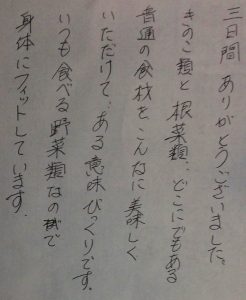 三日間ありがとうございました。
きのこ類と根菜類、どこにでもある
普通の食材をこんなに美味しく
いただけて、ある意味びっくりです。
いつも食べる野菜類なので
身体にフィットしています。